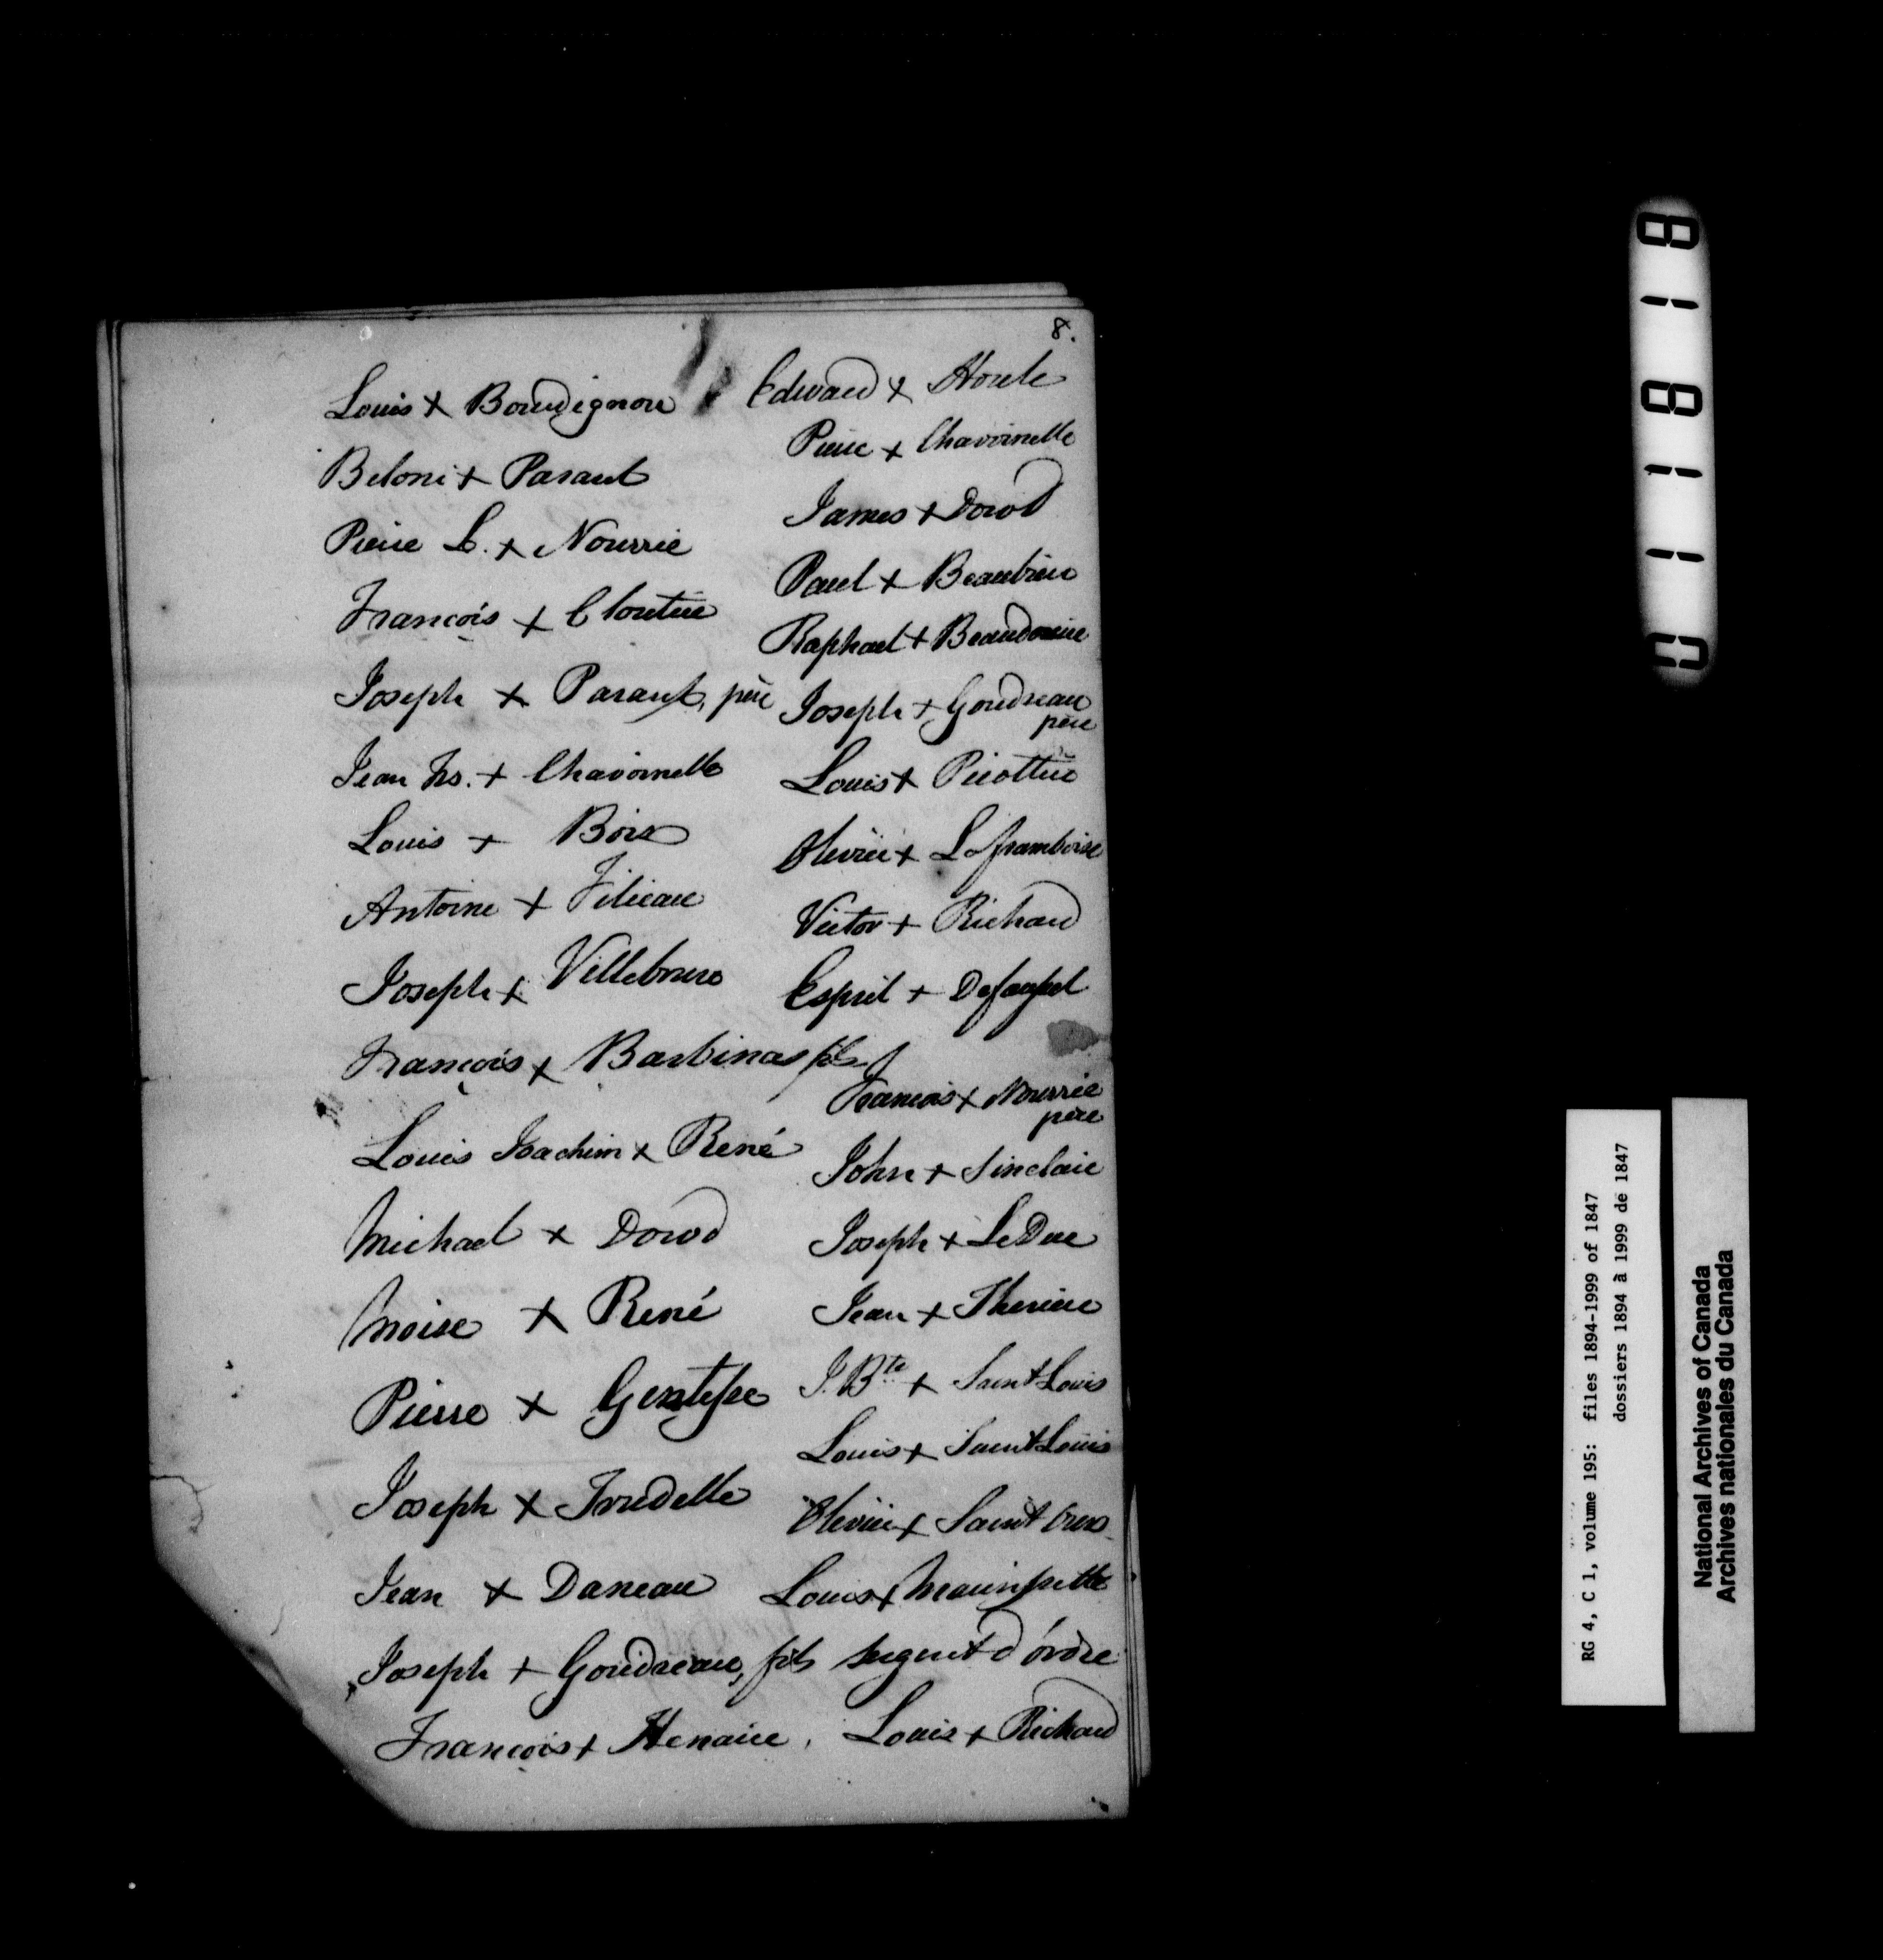 8.
Louis + Bourdignon
Beloni + Parant
Pierre L. + Nourrie
François + Cloutier
Joseph + Parant, père
Jean Frs. + Chavoinelle
Louis + Bois
Antoine + Filieau
Joseph + Villebrun
François + Barbinas fils
Louis Joachim + René
Michael + Dowd
Moise + René
Pierre + Gentesse
Joseph + Trudelle
Jean + Daneau
Joseph + Goudreau, fils
François + Henaire,
Edward + Houle
Pierre + Chavoinelle
James + Dowd
Paul + Beaubien
Raphael + Beaudouin
Joseph + Goudreau
père
Louis + Picottie
Olivier + Laframboise
Victor + Richard
Esprit +
François + Nourrie
père
John + Sinclair
Joseph + LeDuc
Jean + Therien
J. Bte + Saint Louis
Louis + Saint Louis
Olivier + Saint
Louis +
sergent d'ordre
Louis + Richard
011818
RG 4, C 1, volume 195: files 1894-1999 of 1847
dossiers 1894 à 1999 de 1847
National Archives of Canada
Archives nationales du Canada